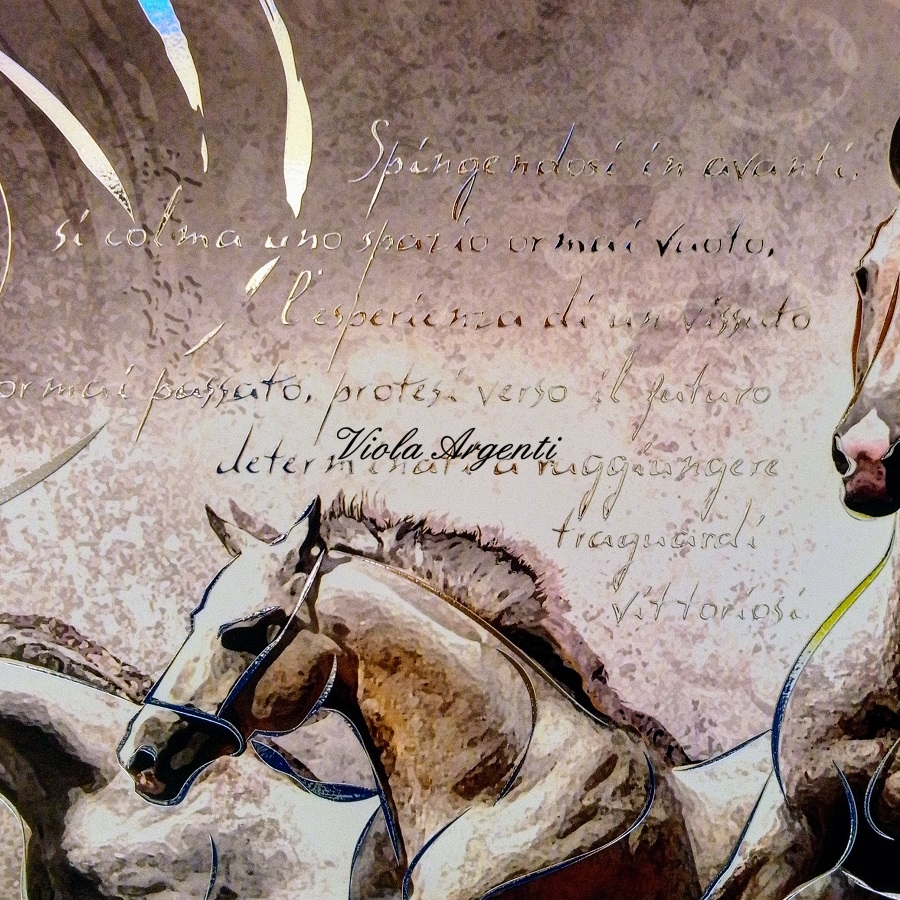 Spingendosi in avanti,
si colma uno spazio ormai vuoto,
l'esperienza di un vissuto
ormai passato, protesi verso il futuro
determinati a raggiungere
Viola Argenti
traguardi
vittoriosi.